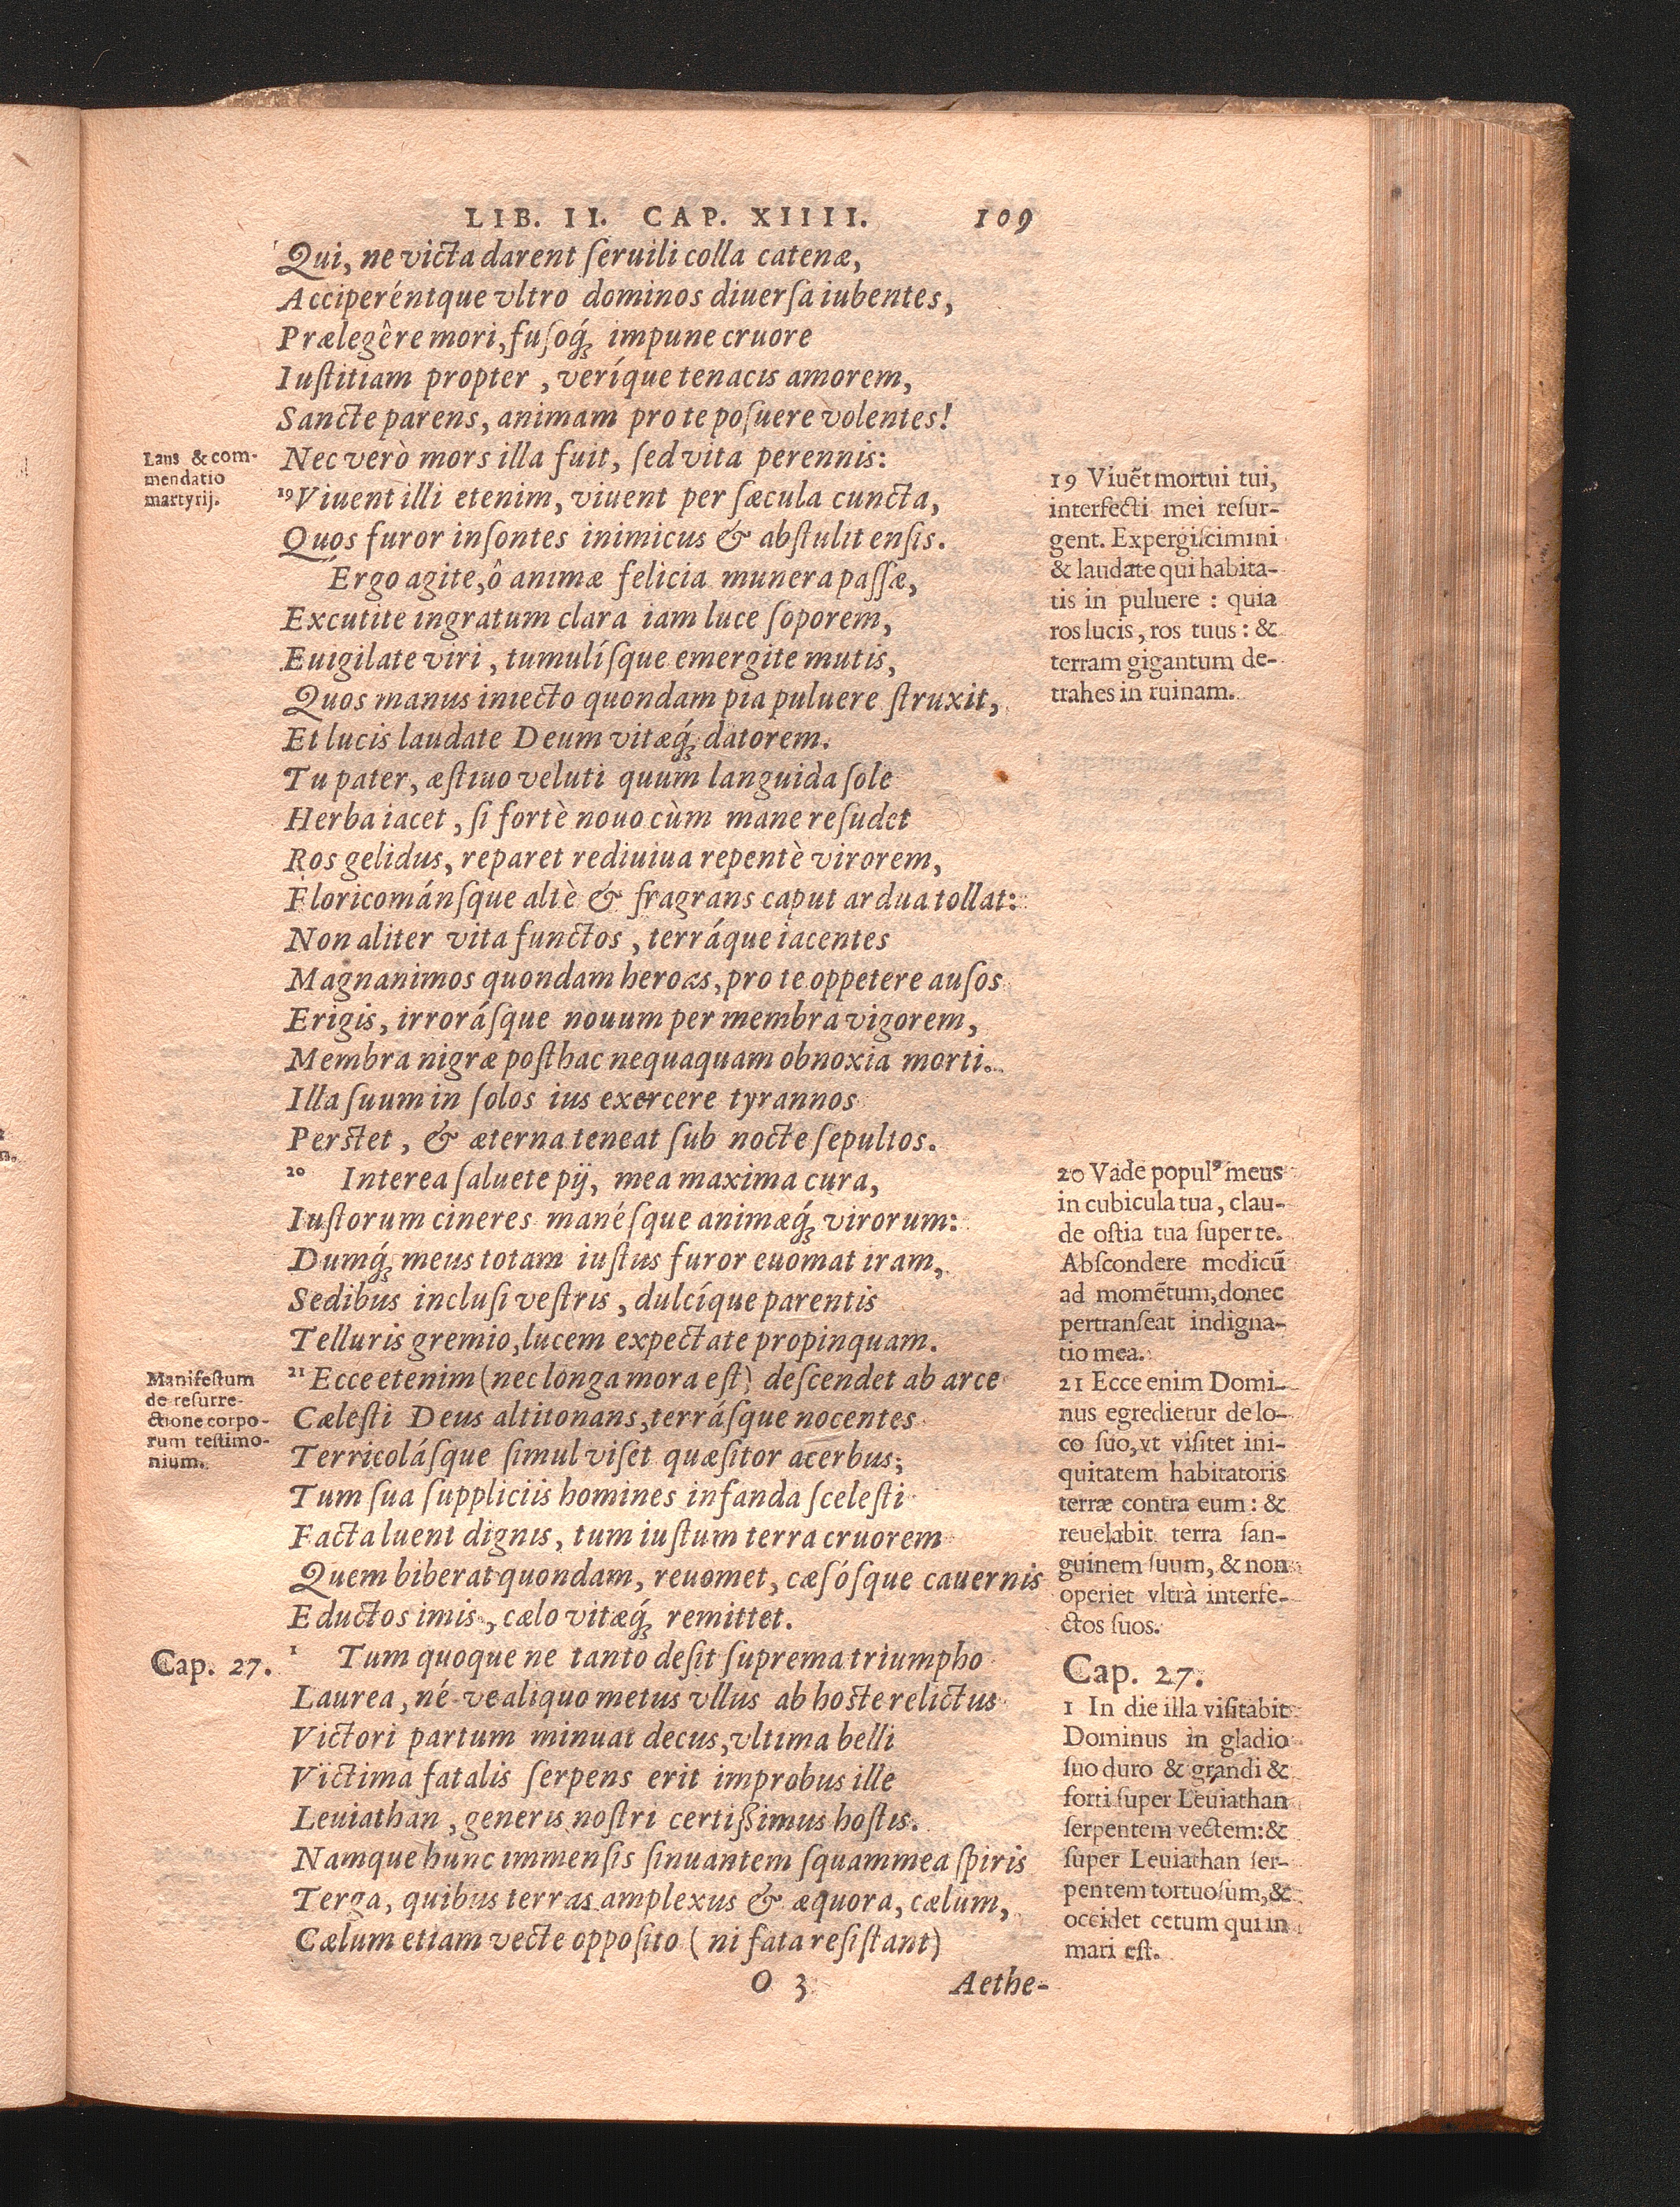 LIB. II. CAP. XIIII. 109
Qui, ne victa darent ſeruili colla catenæ,
Acciperéntque vltro dominos diuerſa iubentes,
Prælegêre mori, fuſoq́ꝫ impune cruore
Iuſtitiam propter, veríque tenacis amorem,
Sancte parens, animam pro te poſuere volentes!
Nec verò mors illa fuit, ſed vita perennis:
19 Viuent illi etenim, viuent per ſæcula cuncta,
Quos furor inſontes inimicus & abſtulit enſis.
Ergo agite, ô animæ felicia munera paſſæ,
Excutite ingratum clara iam luce ſoporem,
Euigilate viri, tumulíſque emergite mutis,
Quos manus iniecto quondam pia puluere ſtruxit,
Et lucis laudate Deum vitæq́ꝫ datorem.
Tu pater, æſtiuo veluti quum languida ſole
Herba iacet, ſi fortè nouo cùm mane reſudet
Ros gelidus, reparet rediuiua repentè virorem,
Floricománſque altè & fragrans caput ardua tollat:
Non aliter vita functos, terráque iacentes
Magnanimos quondam heroas, pro te oppetere auſos
Erigis, irroráſque nouum per membra vigorem,
Membra nigræ poſthac nequaquam obnoxia morti.
Illa ſuum in ſolos ius exercere tyrannos
Perſtet, & æterna teneat ſub nocte ſepultos.
20 Interea ſaluete pij, mea maxima cura,
Iuſtorum cineres manéſque animæq́ꝫ virorum:
Dumq́ꝫ meus totam iuſtus furor euomat iram,
Sedibus incluſi veſtris, dulcíque parentis
Telluris gremio, lucem expectate propinquam.
21 Ecce etenim (nec longa mora eſt) deſcendet ab arce
Cæleſti Deus altitonans, terráſque nocentes
Terricoláſque ſimul viſet quæſitor acerbus;
Tum ſua ſuppliciis homines infanda ſceleſti
Facta luent dignis, tum iuſtum terra cruorem
Quem biberat quondam, reuomet, cæſóſque cauernis
Eductos imis, cælo vitæq́ꝫ remittet.
1 Tum quoque ne tanto deſit ſuprema triumpho
Laurea, né-ve aliquo metus vllus ab hoſte relictus
Victori partum minuat decus, vltima belli
Victima fatalis ſerpens erit improbus ille
Leuiathan, generis noſtri certißimus hoſtis.
Namque hunc immenſis ſinuantem ſquammea ſpiris
Terga, quibus terras amplexus & æquora, cælum,
Cælum etiam vecte oppoſito (ni fata reſiſtant)
O 3 Aethe-
Laus & com-
mendatio
martyrij.
Manifeſtum
de reſurre-
ctione corpo-
rum teſtimo-
nium.
Cap. 27.
19 Viuẽt mortui tui,
interfecti mei reſur-
gent. Expergiſcimini
& laudate qui habita-
tis in puluere: quia
ros lucis, ros tuus: &
terram gigantum de-
trahes in ruinam.
20 Vade populꝰ meus
in cubicula tua, clau-
de oſtia tua ſuper te.
Abſcondere modicũ
ad momẽtum, donec
pertranſeat indigna-
tio mea.
21 Ecce enim Domi-
nus egredietur de lo-
co ſuo, vt viſitet ini-
quitatem habitatoris
terræ contra eum: &
reuelabit terra ſan-
guinem ſuum, & non
operiet vltrà interfe-
ctos ſuos.
Cap. 27.
1 In die illa viſitabit
Dominus in gladio
ſuo duro & grandi &
forti ſuper Leuiathan
ſerpentem vectem: &
ſuper Leuiathan ſer-
pentem tortuoſum, &
occidet cetum qui in
mari eſt.